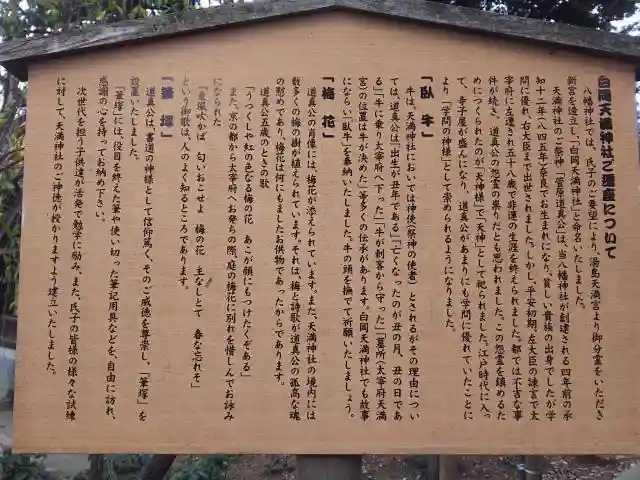 白岡天満神社ご遷座について
八幡神社では、氏子のご要望により、湯島天満宮より御分霊をいただき
新宮を造立し、「白岡天満神社」と命名いたしました。
天満神社のご祭神「菅原道真公」は、当八幡神社が創建される四年前の承
知十二年(八四五年)奈良でお生まれになり、貧しい貴族の出身でしたが学
問に優れ、右大臣まで出世されました。しかし、平安初期、左大臣の諫言で太
宰府に左遷され五十八歳で非運の生涯を終えられました。都では不吉な事
件が続き、道真公の怨霊の祟りだとも思われました。この怨霊を鎮めるた
めにつくられたのが「天神様」で「天神」として祀られました。江戸時代に入っ
て、寺子屋が盛んになり、道真公があまりにも学問に優れていたことに
より「学問の神様」として崇められるようになりました。
「臥牛」
牛は、天満神社においては神使(祭神の使者)とされるがその理由につい
ては、道真公は「出生が丑年である」「亡くなったのが丑の月、丑の日であ
る」「牛に乗り太宰府へ下った」「牛が刺客から守った」「墓所(太宰府天満
宮)の位置は牛が決めた」等多くの伝承があります。白岡天満神社でも故事
にならい「臥牛」を奉納いたしました。牛の頭を撫でて祈願いたしましょう。
「梅花」
道真公の肖像には、梅花が添えられています。また、天満神社の境内には
数多くの梅の樹が植えられています。それは、梅と詩歌が道真公の孤高な魂
の慰めであり、梅花は何にもましたお供物であったからであります。
道真公五歳のときの歌
「うつくしや紅の色なる梅の花 あこが顔にもつけたくぞある」
また、京の都から太宰府へお発ちの際、庭の梅花に別れを惜しんでお詠み
になられた
「東風吹かば 匂いおこせよ 梅の花 主なしとて 春な忘れそ」
という御歌は、人のよく知るところであります。
「筆塚」
道真公は書道の神様として信仰篤く、そのご威徳を尊崇し、「筆塚」を
設置いたしました。
「筆塚」では、役目を終えた筆や使い切った筆記用具などを、自由に訪れ、
感謝の心を持ってお納め下さい。
次世代を担う子供達が活発で勉学に励み、また、氏子の皆様の様々な試練
に対して、天満神社のご神徳が授かりますよう建立いたしました。